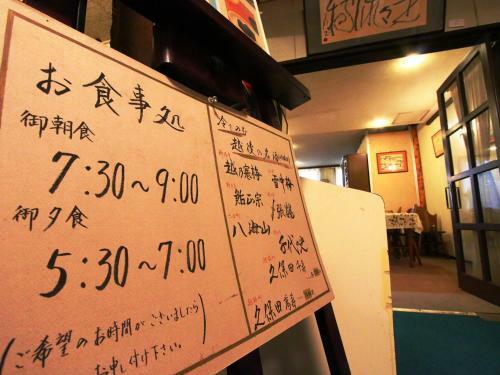 お食事処
御朝食
7:30~9:00
御夕食
5:30~7:00
(ご希望のお時間がございましたら
お申し付け下さい。)
越後の名酒
越乃寒梅
雪中梅
鮎正宗
〆張鶴
八海山
千代の光
久保田 千寿
久保田 萬寿